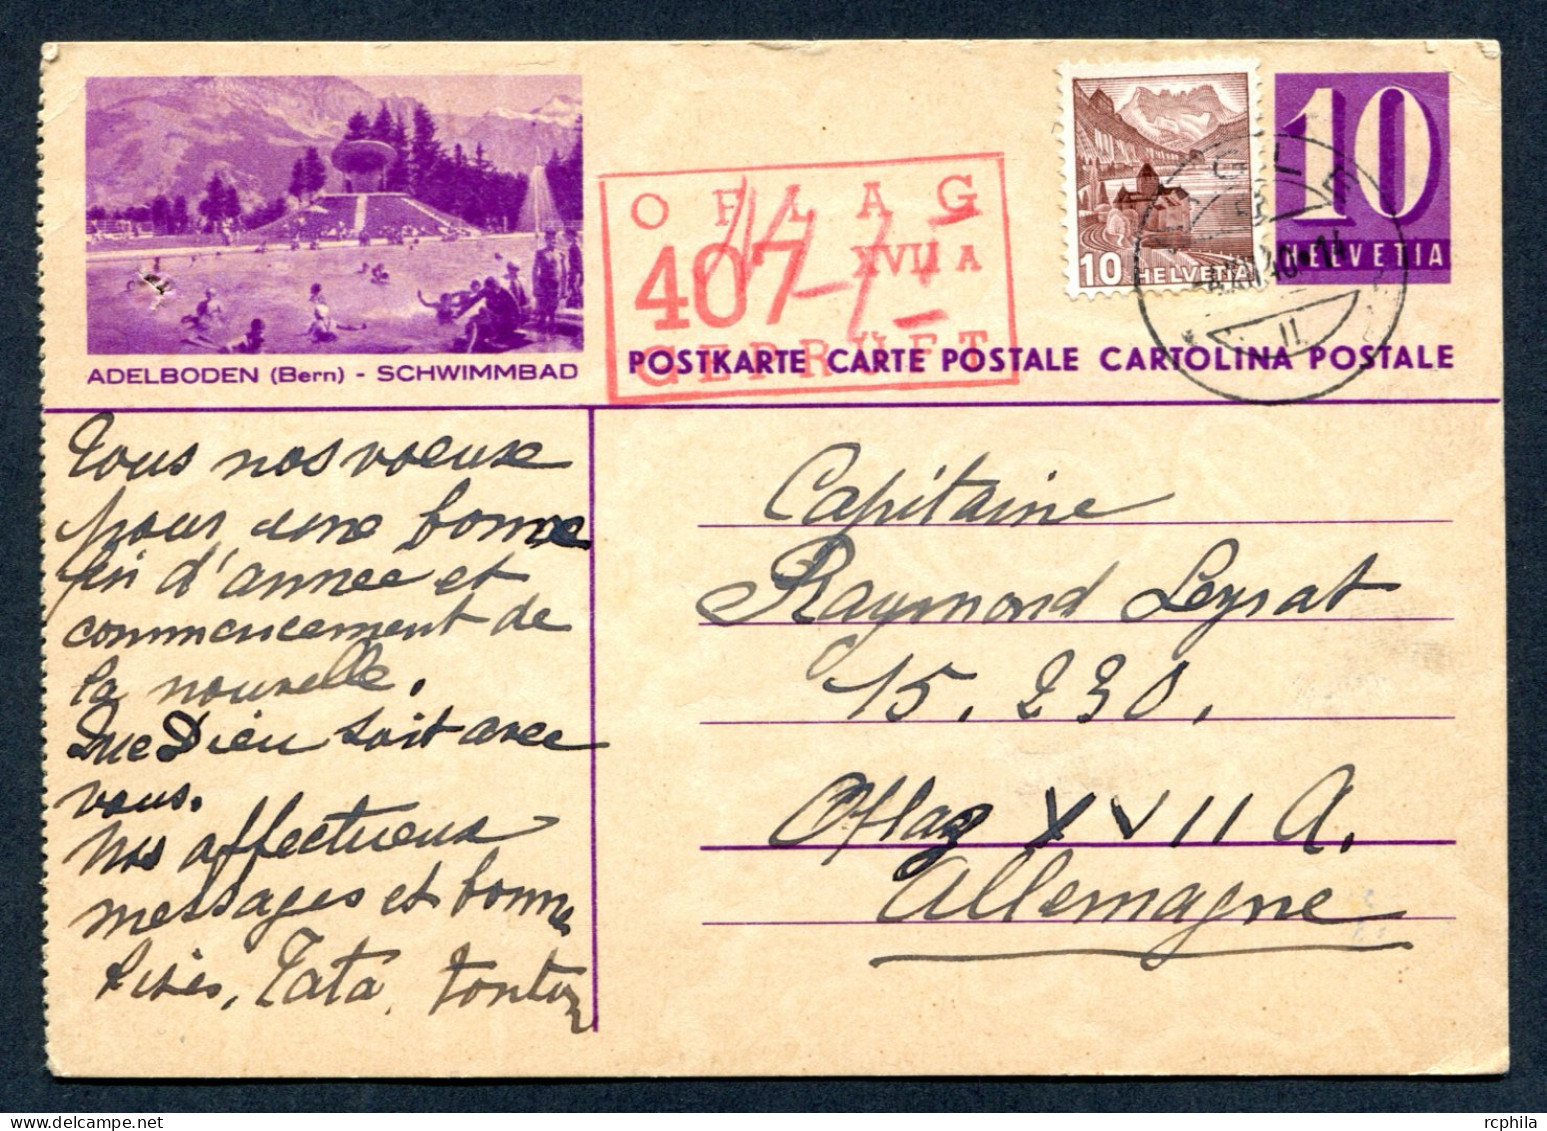 ADELBODEN (Bern) - SCHWIMMBAD
OFLAG
407 XVII A
GEPRÜFT
10 HELVETIA
10
HELVETIA
POSTKARTE CARTE POSTALE CARTOLINA POSTALE
Tous nos voeux
pour une bonne
fin d'année et
commencement de
la nouvelle.
Que Dieu soit avec
vous.
Nos affectueux
messages et bonne
Tata, Tonton
Capitaine
Raymond Leyrat
15.230.
Oflag XVII A.
Allemagne
rcphila
www.delcampe.net